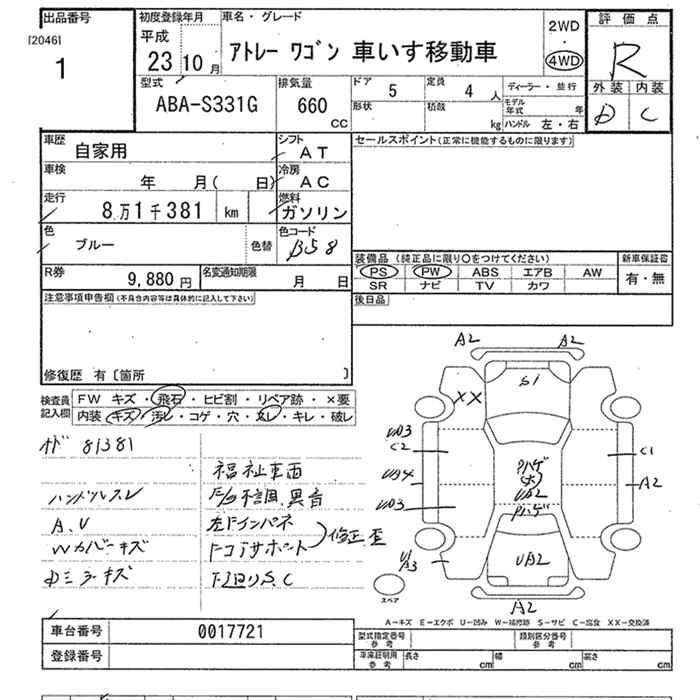 出品番号
[2046]
1
初度登録年月
平成
23 10 月
車名・グレード
アトレー ワゴン 車いす移動車
2WD
・
4WD
評価点
R
外装 内装
D C
型式
ABA-S331G
排気量
660
CC
ドア 5
形状
定員 4 人
積載 kg
ディーラー・並行
モデル年式 年
ハンドル 左・右
車歴
自家用
シフト
AT
車検
年 月( 日)
冷房
AC
走行
8万1千381 km
燃料
ガソリン
色
ブルー
色替
色コード
B58
R券
9,880 円
名変通知期限
月 日
セールスポイント(正常に機能するものに限ります)
装備品(純正品に限り○をつけてください)
PS PW ABS エアB AW
SR ナビ TV カワ
新車保証書
有・無
後日品
注意事項申告欄(不具合内容等は具体的に記入して下さい)
修復歴 有〔箇所
検査員
記入欄
FW キズ・飛石・ヒビ割・リペア跡・×要
内装 キズ・汚レ・コゲ・穴・スレ・キレ・破レ
オド 81381
福祉車両
ハンドルスレ
F/g不調、異音
A.U
左Fインパネ
Wカバーキズ
Fコアサポート
修正歪
Dミラーキズ
下廻りS.C
A2
A2
S1
XX
UD3
C2
C1
UB4
A2
UD3
Pハゲ
(大)
UB2
Pハゲ
U1
A3
UB2
A2
スペア
A－キズ E－エクボ U－凹み W－補修跡 S－サビ C－腐食 XX－交換済
車台番号
0017721
登録番号
型式指定番号
参考
類別区分番号
参考
車庫証明用
参考
長さ cm
幅 cm
高さ cm